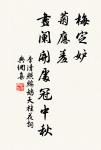 梅定妒
菊應羞
畫闌開處冠中秋
李清照鷓鴣天桂花詞
典網集